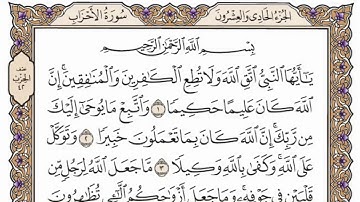 الجزء الحادي والعشرون
سورة الأحزاب
بِسْمِ اللَّهِ الرَّحْمَٰنِ الرَّحِيمِ
يَٰٓأَيُّهَا النَّبِيُّ اتَّقِ اللَّهَ وَلَا تُطِعِ الْكَٰفِرِينَ وَالْمُنَٰفِقِينَ إِنَّ
اللَّهَ كَانَ عَلِيمًا حَكِيمًا ١ وَاتَّبِعْ مَا يُوحَىٰٓ إِلَيْكَ
مِن رَّبِّكَ إِنَّ اللَّهَ كَانَ بِمَا تَعْمَلُونَ خَبِيرًا ٢ وَتَوَكَّلْ
عَلَى اللَّهِ وَكَفَىٰ بِاللَّهِ وَكِيلًا ٣ مَّا جَعَلَ اللَّهُ لِرَجُلٍ مِّن
قَلْبَيْنِ فِي جَوْفِهِ وَمَا جَعَلَ أَزْوَٰجَكُمُ الَّٰٓـِٔي تُظَٰهِرُونَ